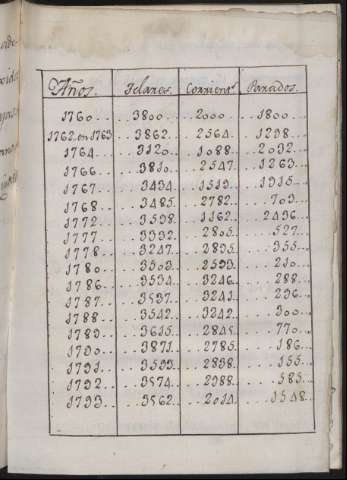 Años. Telares. Corrientes. Parados.
1760 3800 2000 1800
1762 en 1763 3862 2564 1298
1764 3120 1088 2032
1766 3810 2547 1263
1767 3434 1519 1915
1768 3485 2782 703
1772 3598 1162 2436
1777 3332 2805 527
1778 3247 2895 355
1780 2593 210
1786 3534 3246 288
1787 3537 3241 296
1788 3542 3242 300
1789 3615 2845 770
1790 3871 2785 186
1791 2898 155
1792 3574 2988 585
1793 3562 2014 1548